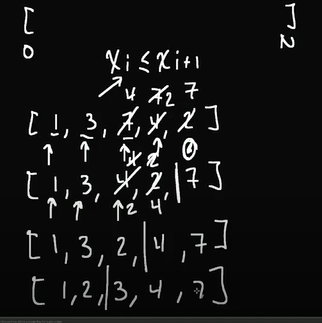 [ ]
0 2
xi ≤ xi+1
4 2 7
[ 1, 3, 7, 4, 2 ]
[ 1, 3, 4, 2, | 7 ]
2 4
[ 1, 3, 2, | 4, 7 ]
[ 1, 2, | 3, 4, 7 ]